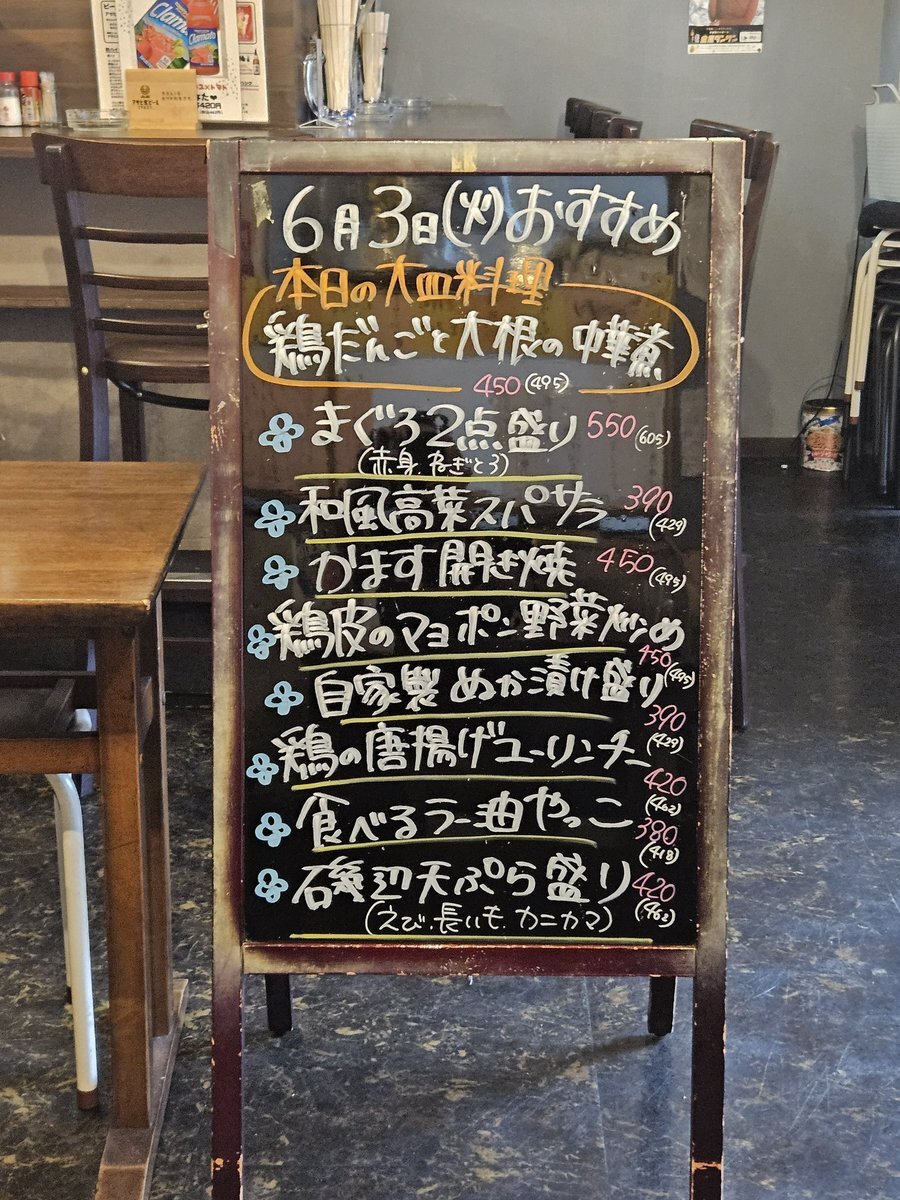 Clamato
Clamato
アサヒ生ビール
6月3日(火)おすすめ
本日の大皿料理
鶏だんごと大根の中華煮
450(495)
まぐろ2点盛り 550(605)
(赤身、ねぎとろ)
和風高菜スパサラ 390(429)
かます開き焼 450(495)
鶏皮のマヨポン野菜炒め
450(495)
自家製ぬか漬け盛り
390(429)
鶏の唐揚げユーリンチー
420(462)
食べるラー油やっこ
380(418)
磯辺天ぷら盛り 420(462)
(えび、長いも、カニカマ)